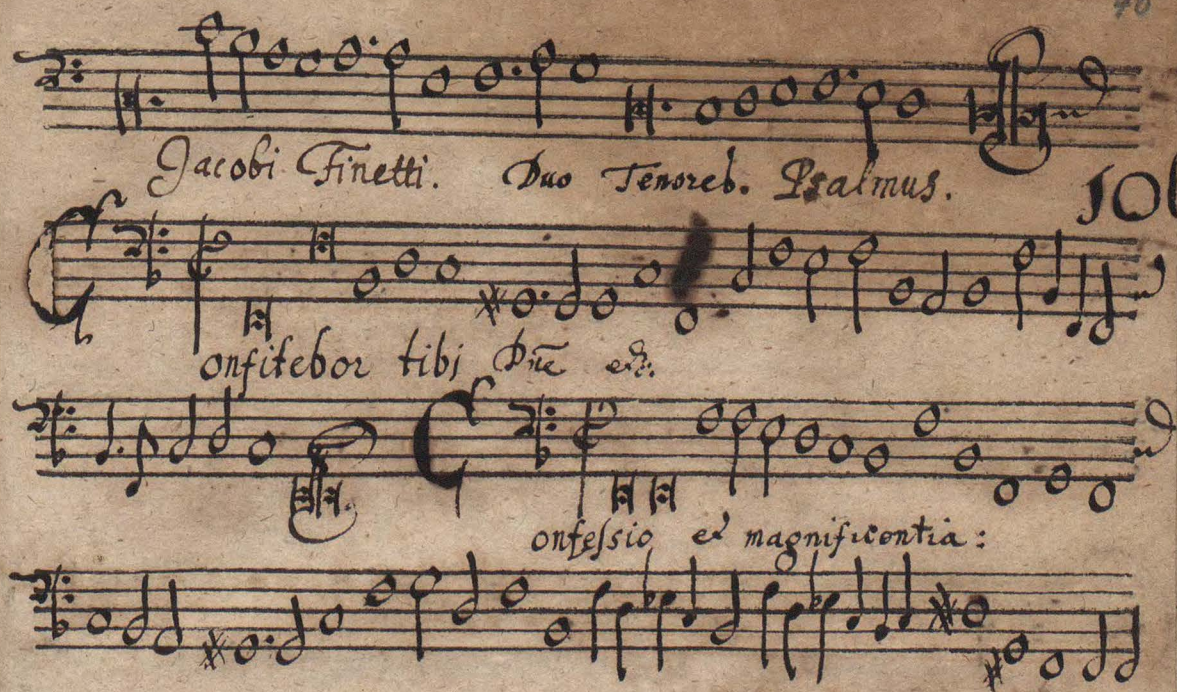 Jacobi Finetti. Duo Tenoreb. Psalmus.
Confitebor tibi Dnē etc.
Confeſsio et magnificentia: